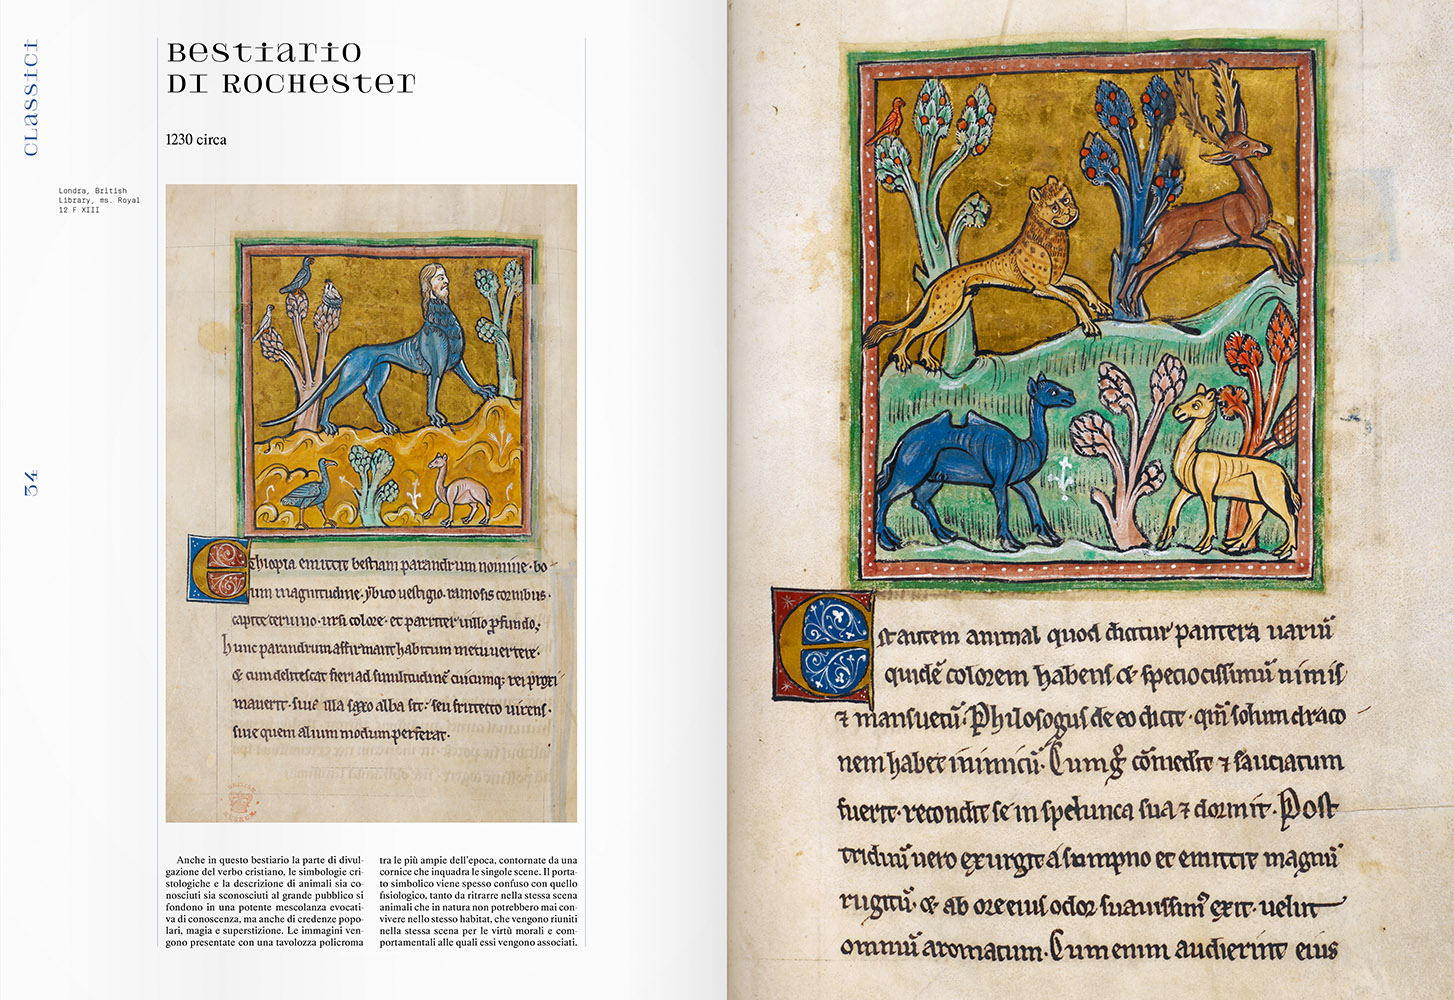 Classici
34
Bestiario
di Rochester
1230 circa
Londra, British
Library, ms. Royal
12 F XIII
Ethiopia emittit bestiam parandrum nomine· bo
um magnitudine· ybico uestigio· ramosis cornibus·
capite ceruino· ursi colore· et pariter uillo ꝓfundo;
hunc parandrum affirmant habitum metu uertere·
& cum delitescat fieri ad similitudinē cuicumqꝫ rei proxi
mauerit· siue illa saxo alba sit· seu frutecto uirens·
siue quem alium modum perferat·
Anche in questo bestiario la parte di divul-
gazione del verbo cristiano, le simbologie cri-
stologiche e la descrizione di animali sia co-
nosciuti sia sconosciuti al grande pubblico si
fondono in una potente mescolanza evocati-
va di conoscenza, ma anche di credenze popo-
lari, magia e superstizione. Le immagini ven-
gono presentate con una tavolozza policroma
tra le più ampie dell'epoca, contornate da una
cornice che inquadra le singole scene. Il porta-
to simbolico viene spesso confuso con quello
fisiologico, tanto da ritrarre nella stessa scena
animali che in natura non potrebbero mai con-
vivere nello stesso habitat, che vengono riuniti
nella stessa scena per le virtù morali e com-
portamentali alle quali essi vengono associati.
Est autem animal quod dicitur pantera uariū
quidē colorem habens & speciocissimū nimis
⁊ mansuetū· Philosogus de eo dicit· qm̄ solum draco
nem habet inimicū· Cum gͦ cōmedit ⁊ sauciatum
fuerit· recondit se in spelunca sua ⁊ dormit· Post
triduū uero exurgit a sompno et emittit magnū
rugitū· & ab ore eius odor suauissimꝰ exit· uelut
omniū aromatum· Cum enim audierint eius